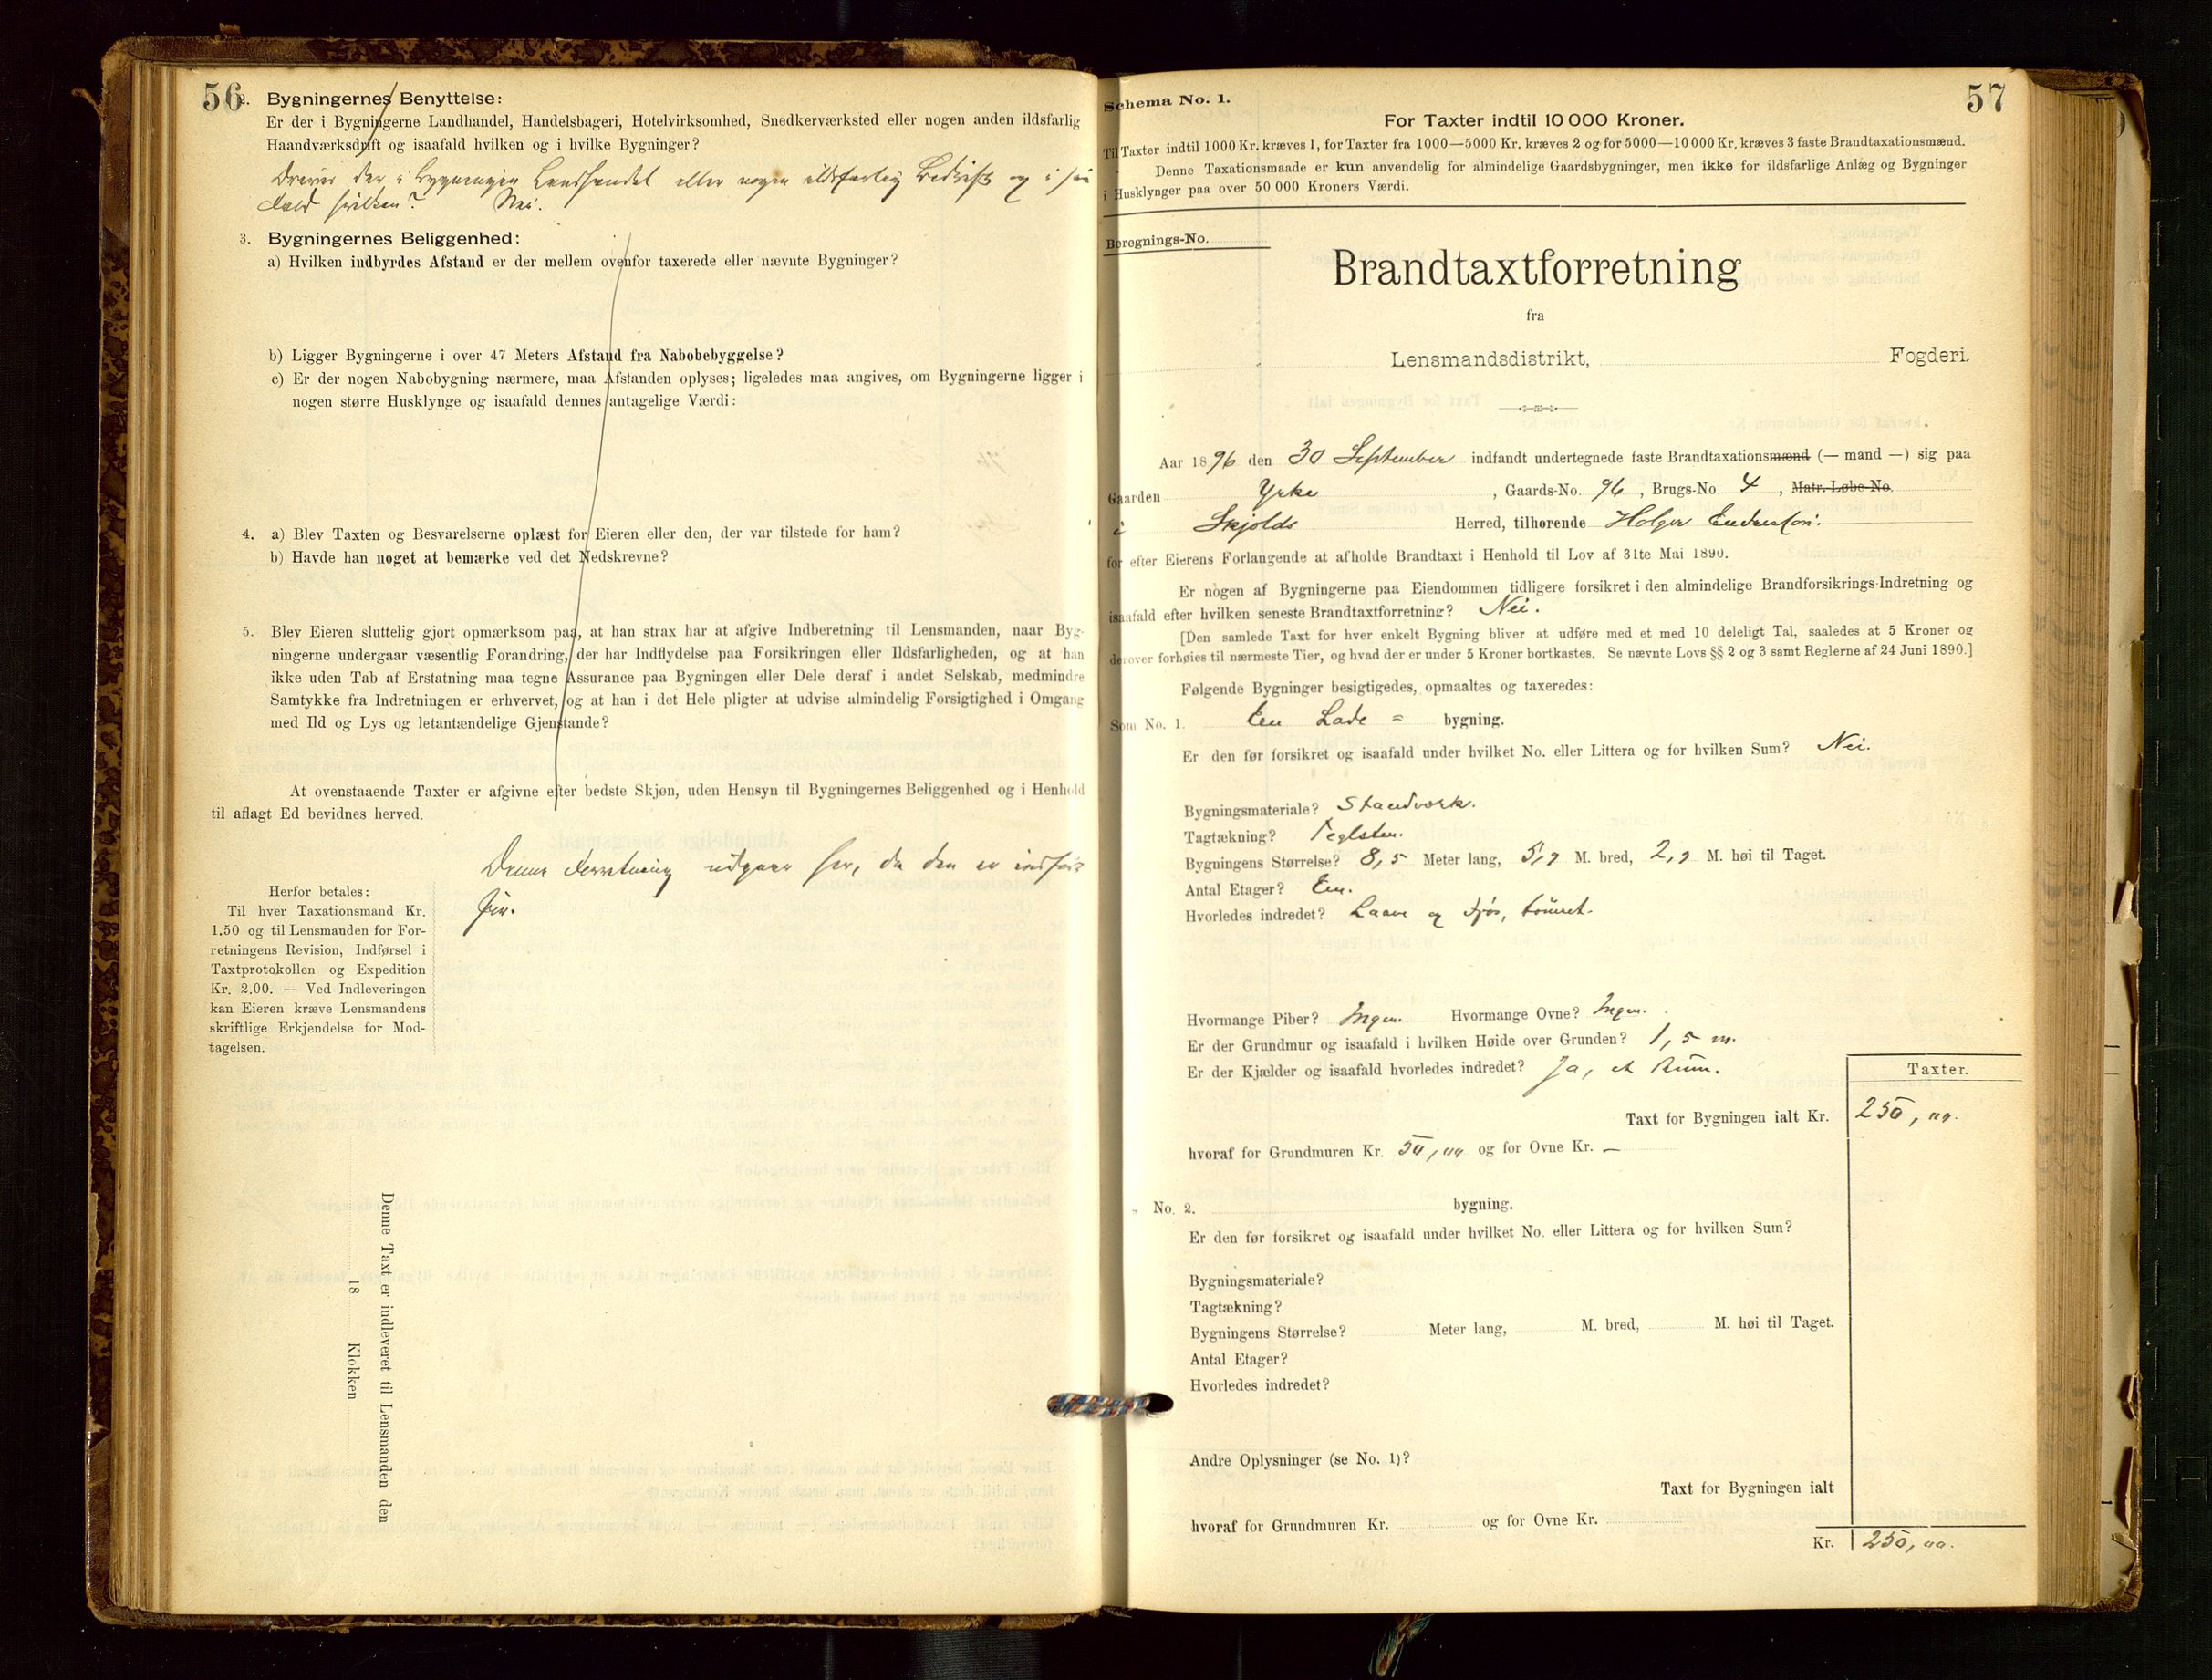 56
2. Bygningernes Benyttelse:
Er der i Bygningerne Landhandel, Handelsbageri, Hotelvirksomhed, Snedkerværksted eller nogen anden ildsfarlig
Haandværksdrift og isaafald hvilken og i hvilke Bygninger?
Drives der i Bygningen Landhandel eller nogen ildsfarlig Bedrift og i saa
Fald hvilken? Nei.
3. Bygningernes Beliggenhed:
a) Hvilken indbyrdes Afstand er der mellem ovenfor taxerede eller nævnte Bygninger?
b) Ligger Bygningerne i over 47 Meters Afstand fra Nabobebyggelse?
c) Er der nogen Nabobygning nærmere, maa Afstanden oplyses; ligeledes maa angives, om Bygningerne ligger i
nogen større Husklynge og isaafald dennes antagelige Værdi:
4. a) Blev Taxten og Besvarelserne oplæst for Eieren eller den, der var tilstede for ham?
b) Havde han noget at bemærke ved det Nedskrevne?
5. Blev Eieren sluttelig gjort opmærksom paa, at han strax har at afgive Indberetning til Lensmanden, naar Byg-
ningerne undergaar væsentlig Forandring, der har Indflydelse paa Forsikringen eller Ildsfarligheden, og at han
ikke uden Tab af Erstatning maa tegne Assurance paa Bygningen eller Dele deraf i andet Selskab, medmindre
Samtykke fra Indretningen er erhvervet, og at han i det Hele pligter at udvise almindelig Forsigtighed i Omgang
med Ild og Lys og letantændelige Gjenstande?
At ovenstaaende Taxter er afgivne efter bedste Skjøn, uden Hensyn til Bygningernes Beliggenhed og i Henhold
til aflagt Ed bevidnes herved.
Denne Forretning udgaar her, da den er indført
før.
Herfor betales:
Til hver Taxationsmand Kr.
1.50 og til Lensmanden for For-
retningens Revision, Indførsel i
Taxtprotokollen og Expedition
Kr. 2.00. — Ved Indleveringen
kan Eieren kræve Lensmandens
skriftlige Erkjendelse for Mod-
tagelsen.
Denne Taxt er indleveret til Lensmanden den
18 Klokken
57
Schema No. 1.
For Taxter indtil 10 000 Kroner.
Til Taxter indtil 1000 Kr. kræves 1, for Taxter fra 1000—5000 Kr. kræves 2 og for 5000—10 000 Kr. kræves 3 faste Brandtaxationsmænd.
Denne Taxationsmaade er kun anvendelig for almindelige Gaardsbygninger, men ikke for ildsfarlige Anlæg og Bygninger
i Husklynger paa over 50 000 Kroners Værdi.
Beregnings-No.
Brandtaxtforretning
fra
Lensmandsdistrikt, Fogderi.
Aar 1896 den 30 September indfandt undertegnede faste Brandtaxationsmænd (— mand —) sig paa
Gaarden Yrke, Gaards-No. 96, Brugs-No. 4, Matr.-Løbe-No.
i Skjolds Herred, tilhørende Holger Endresen.
for efter Eierens Forlangende at afholde Brandtaxt i Henhold til Lov af 31te Mai 1890.
Er nogen af Bygningerne paa Eiendommen tidligere forsikret i den almindelige Brandforsikrings-Indretning og
isaafald efter hvilken seneste Brandtaxtforretning? Nei.
[Den samlede Taxt for hver enkelt Bygning bliver at udføre med et med 10 deleligt Tal, saaledes at 5 Kroner og
derover forhøies til nærmeste Tier, og hvad der er under 5 Kroner bortkastes. Se nævnte Lovs §§ 2 og 3 samt Reglerne af 24 Juni 1890.]
Følgende Bygninger besigtigedes, opmaaltes og taxeredes:
Som No. 1. En Lade = bygning.
Er den før forsikret og isaafald under hvilket No. eller Littera og for hvilken Sum? Nei.
Bygningsmateriale? Standværk.
Tagtækning? Teglsten.
Bygningens Størrelse? 8,5 Meter lang, 5,7 M. bred, 2,7 M. høi til Taget.
Antal Etager? En.
Hvorledes indredet? Laave og Fjøs, tømret.
Hvormange Piber? Ingen. Hvormange Ovne? Ingen.
Er der Grundmur og isaafald i hvilken Høide over Grunden? 1,5 m.
Er der Kjælder og isaafald hvorledes indredet? Ja, et Rum.
Taxter.
Taxt for Bygningen ialt Kr. 250,00.
hvoraf for Grundmuren Kr. 50,00 og for Ovne Kr. —
" No. 2. bygning.
Er den før forsikret og isaafald under hvilket No. eller Littera og for hvilken Sum?
Bygningsmateriale?
Tagtækning?
Bygningens Størrelse? Meter lang, M. bred, M. høi til Taget.
Antal Etager?
Hvorledes indredet?
Andre Oplysninger (se No. 1)?
Taxt for Bygningen ialt
hvoraf for Grundmuren Kr. og for Ovne Kr.
Kr. 250,00.